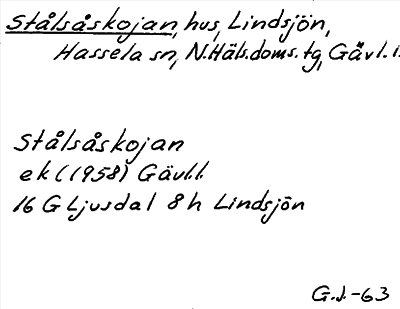 Stålsåskojan, hus, Lindsjön,
Hassela sn, N.Häls.doms.tg, Gävl.l.
Stålsåskojan
ek (1958) Gävl.l.
16 G Ljusdal 8h Lindsjön
G.J.-63